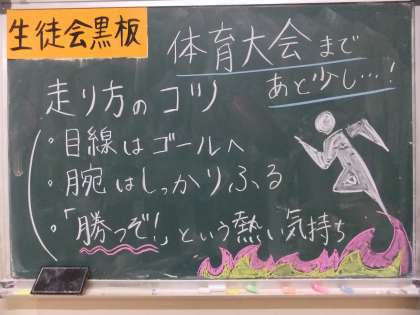 生徒会黒板
体育大会まで
あと少し…!
走り方のコツ
・目線はゴールへ
・腕はしっかりふる
・「勝つぞ!」という熱い気持ち